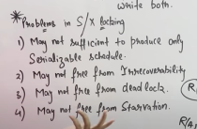 write both.
*Problems in S/X locking
1) May not sufficient to produce only
Serializable schedule.
2) May not free from Irrecoverability
3) May not free from deadlock.
4) May not free from Starvation.